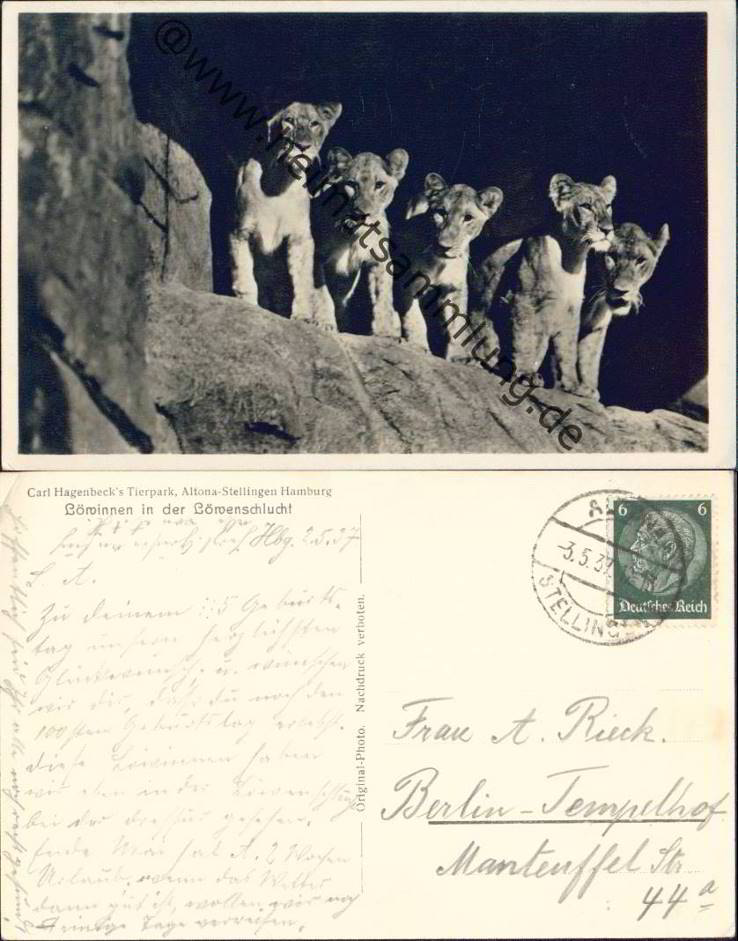 @www.heimatsammlung.de
Carl Hagenbeck's Tierpark, Altona-Stellingen Hamburg
Löwinnen in der Löwenschlucht
Hbg. 2.5.37
L. A.
Zu deinem 75 Geburts-
tag unsern herzlichsten
Glückwunsch u. wünschen
wir dir, daß du noch den
100sten Geburtstag erlebst.
diese Löwinnen haben
wir eben in der Löwenschlucht
bei der gesehen.
Ende Mai hat A. 2 Wochen
Urlaub, wenn das Wetter
dann gut ist, wollen wir noch
einige Tage verreisen.
Original-Photo. Nachdruck verboten.
3.5.37
STELLINGEN
6 6
Deutsches Reich
Frau A. Rieck.
Berlin-Tempelhof
Manteuffel Str
44a